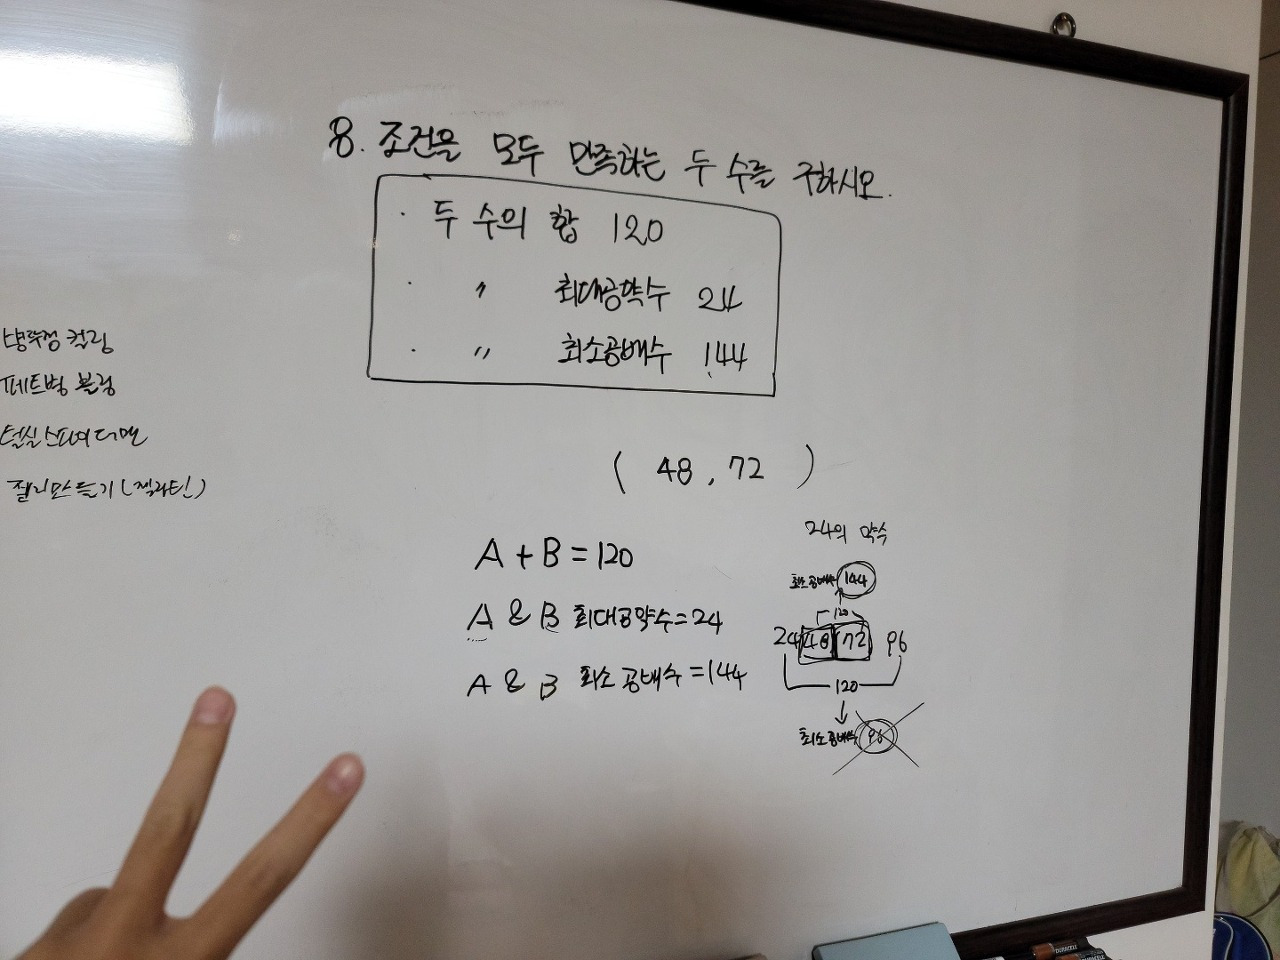 8. 조건을 모두 만족하는 두 수를 구하시오.
· 두 수의 합 120
· 〃 최대공약수 24
· 〃 최소공배수 144
병뚜껑 컬링
페트병 볼링
털실 스파이더맨
젤리만들기(젤라틴)
( 48 , 72 )
A + B = 120
A & B 최대공약수=24
A & B 최소공배수=144
24의 약수
최소공배수 144
120
24 48 72 96
120
최소공배수 96
DURACELL
DURACELL